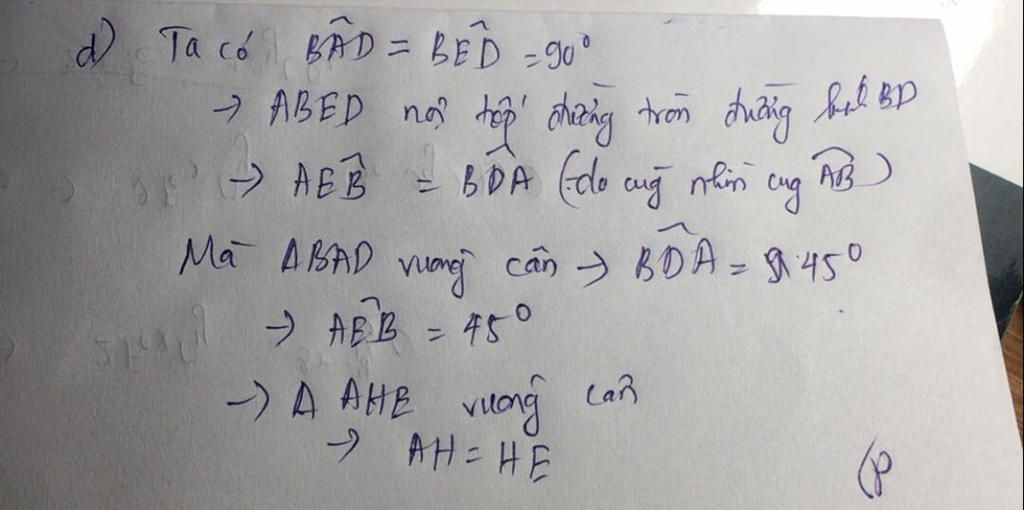 d) Ta có BÂD = BÊD = 90°
→ ABED nội tiếp đường tròn đường kính BD
→ AÊB = BD̂A (do cùng nhìn cung AB)
Mà ΔBAD vuông cân → BD̂A = 45°
→ AÊB = 45°
→ Δ AHE vuông cân
→ AH = HE
(P